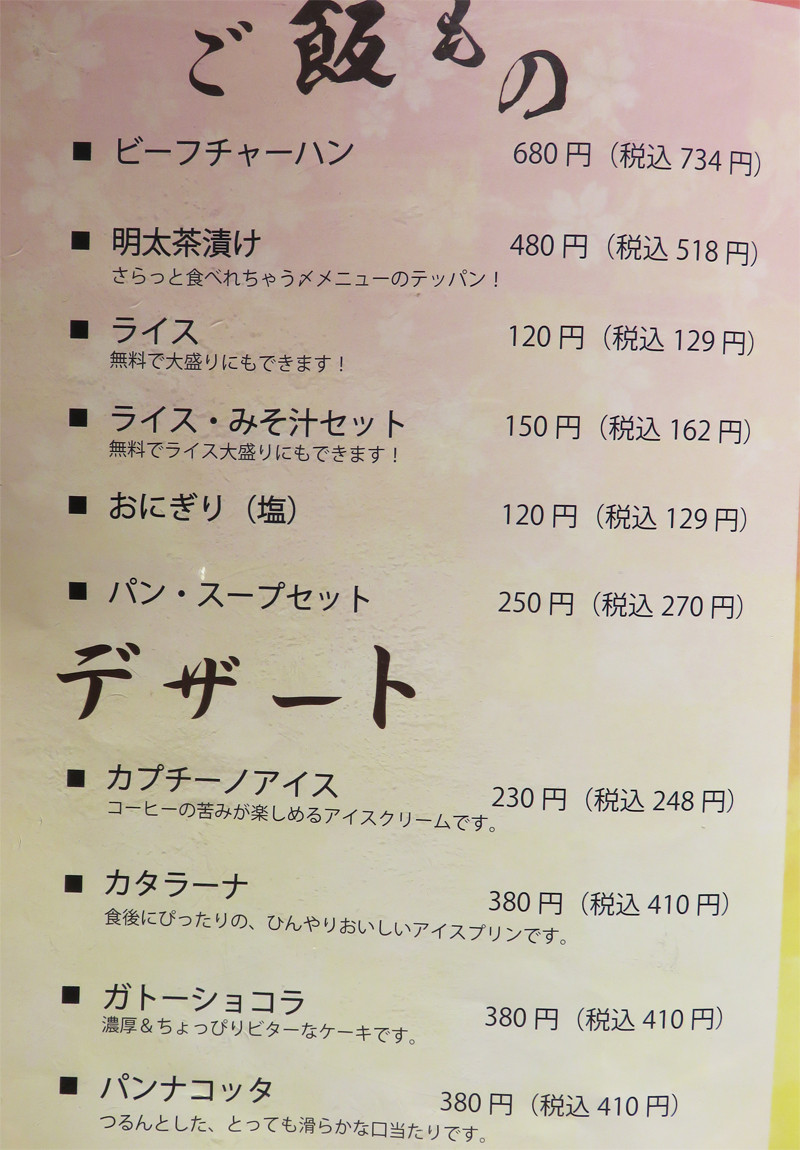 ご飯もの
■ ビーフチャーハン 680円（税込734円）
■ 明太茶漬け 480円（税込518円）
さらっと食べれちゃう〆メニューのテッパン！
■ ライス 120円（税込129円）
無料で大盛りにもできます！
■ ライス・みそ汁セット 150円（税込162円）
無料でライス大盛りにもできます！
■ おにぎり（塩） 120円（税込129円）
■ パン・スープセット 250円（税込270円）
デザート
■ カプチーノアイス 230円（税込248円）
コーヒーの苦みが楽しめるアイスクリームです。
■ カタラーナ 380円（税込410円）
食後にぴったりの、ひんやりおいしいアイスプリンです。
■ ガトーショコラ 380円（税込410円）
濃厚＆ちょっぴりビターなケーキです。
■ パンナコッタ 380円（税込410円）
つるんとした、とっても滑らかな口当たりです。